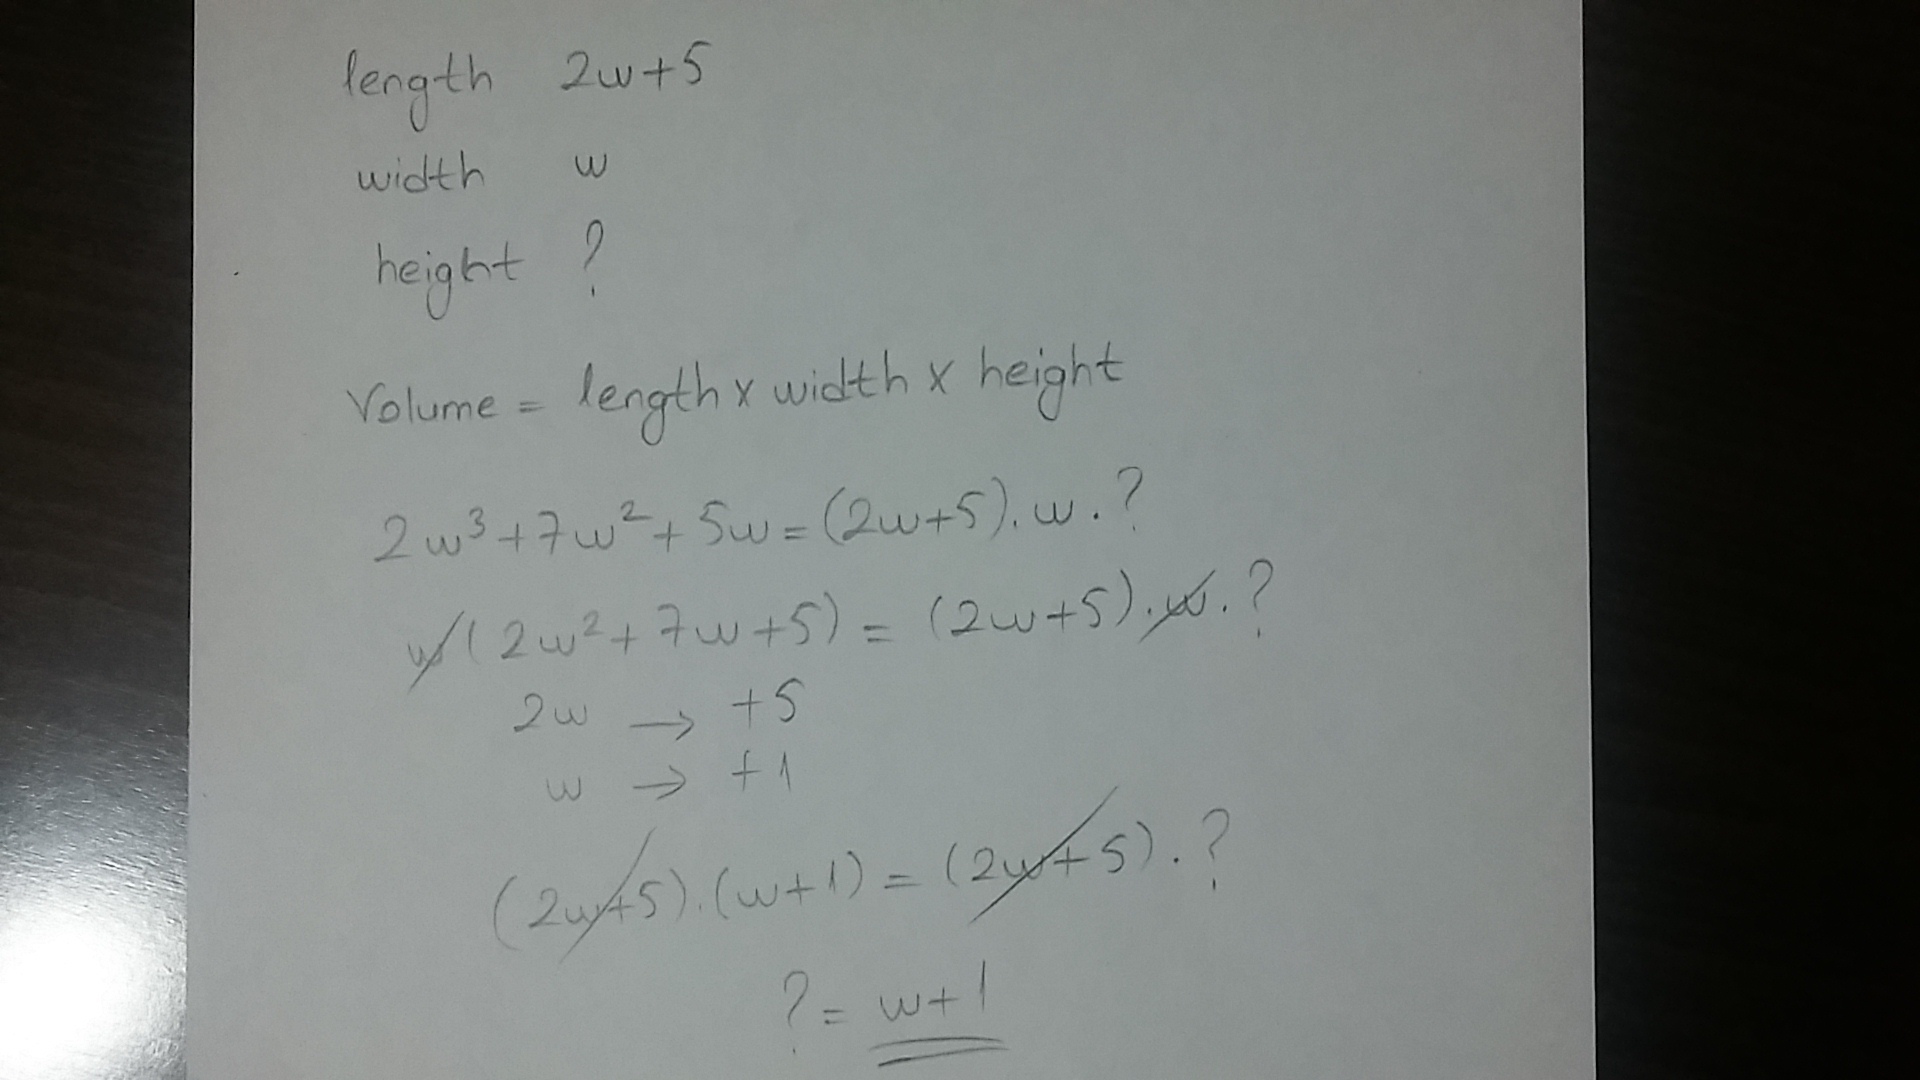 length 2w+5
width w
height ?
Volume = length x width x height
2w³+7w²+5w=(2w+5).w.?
w(2w²+7w+5) = (2w+5).w.?
2w → +5
w → +1
(2w+5).(w+1) = (2w+5).?
? = w+1